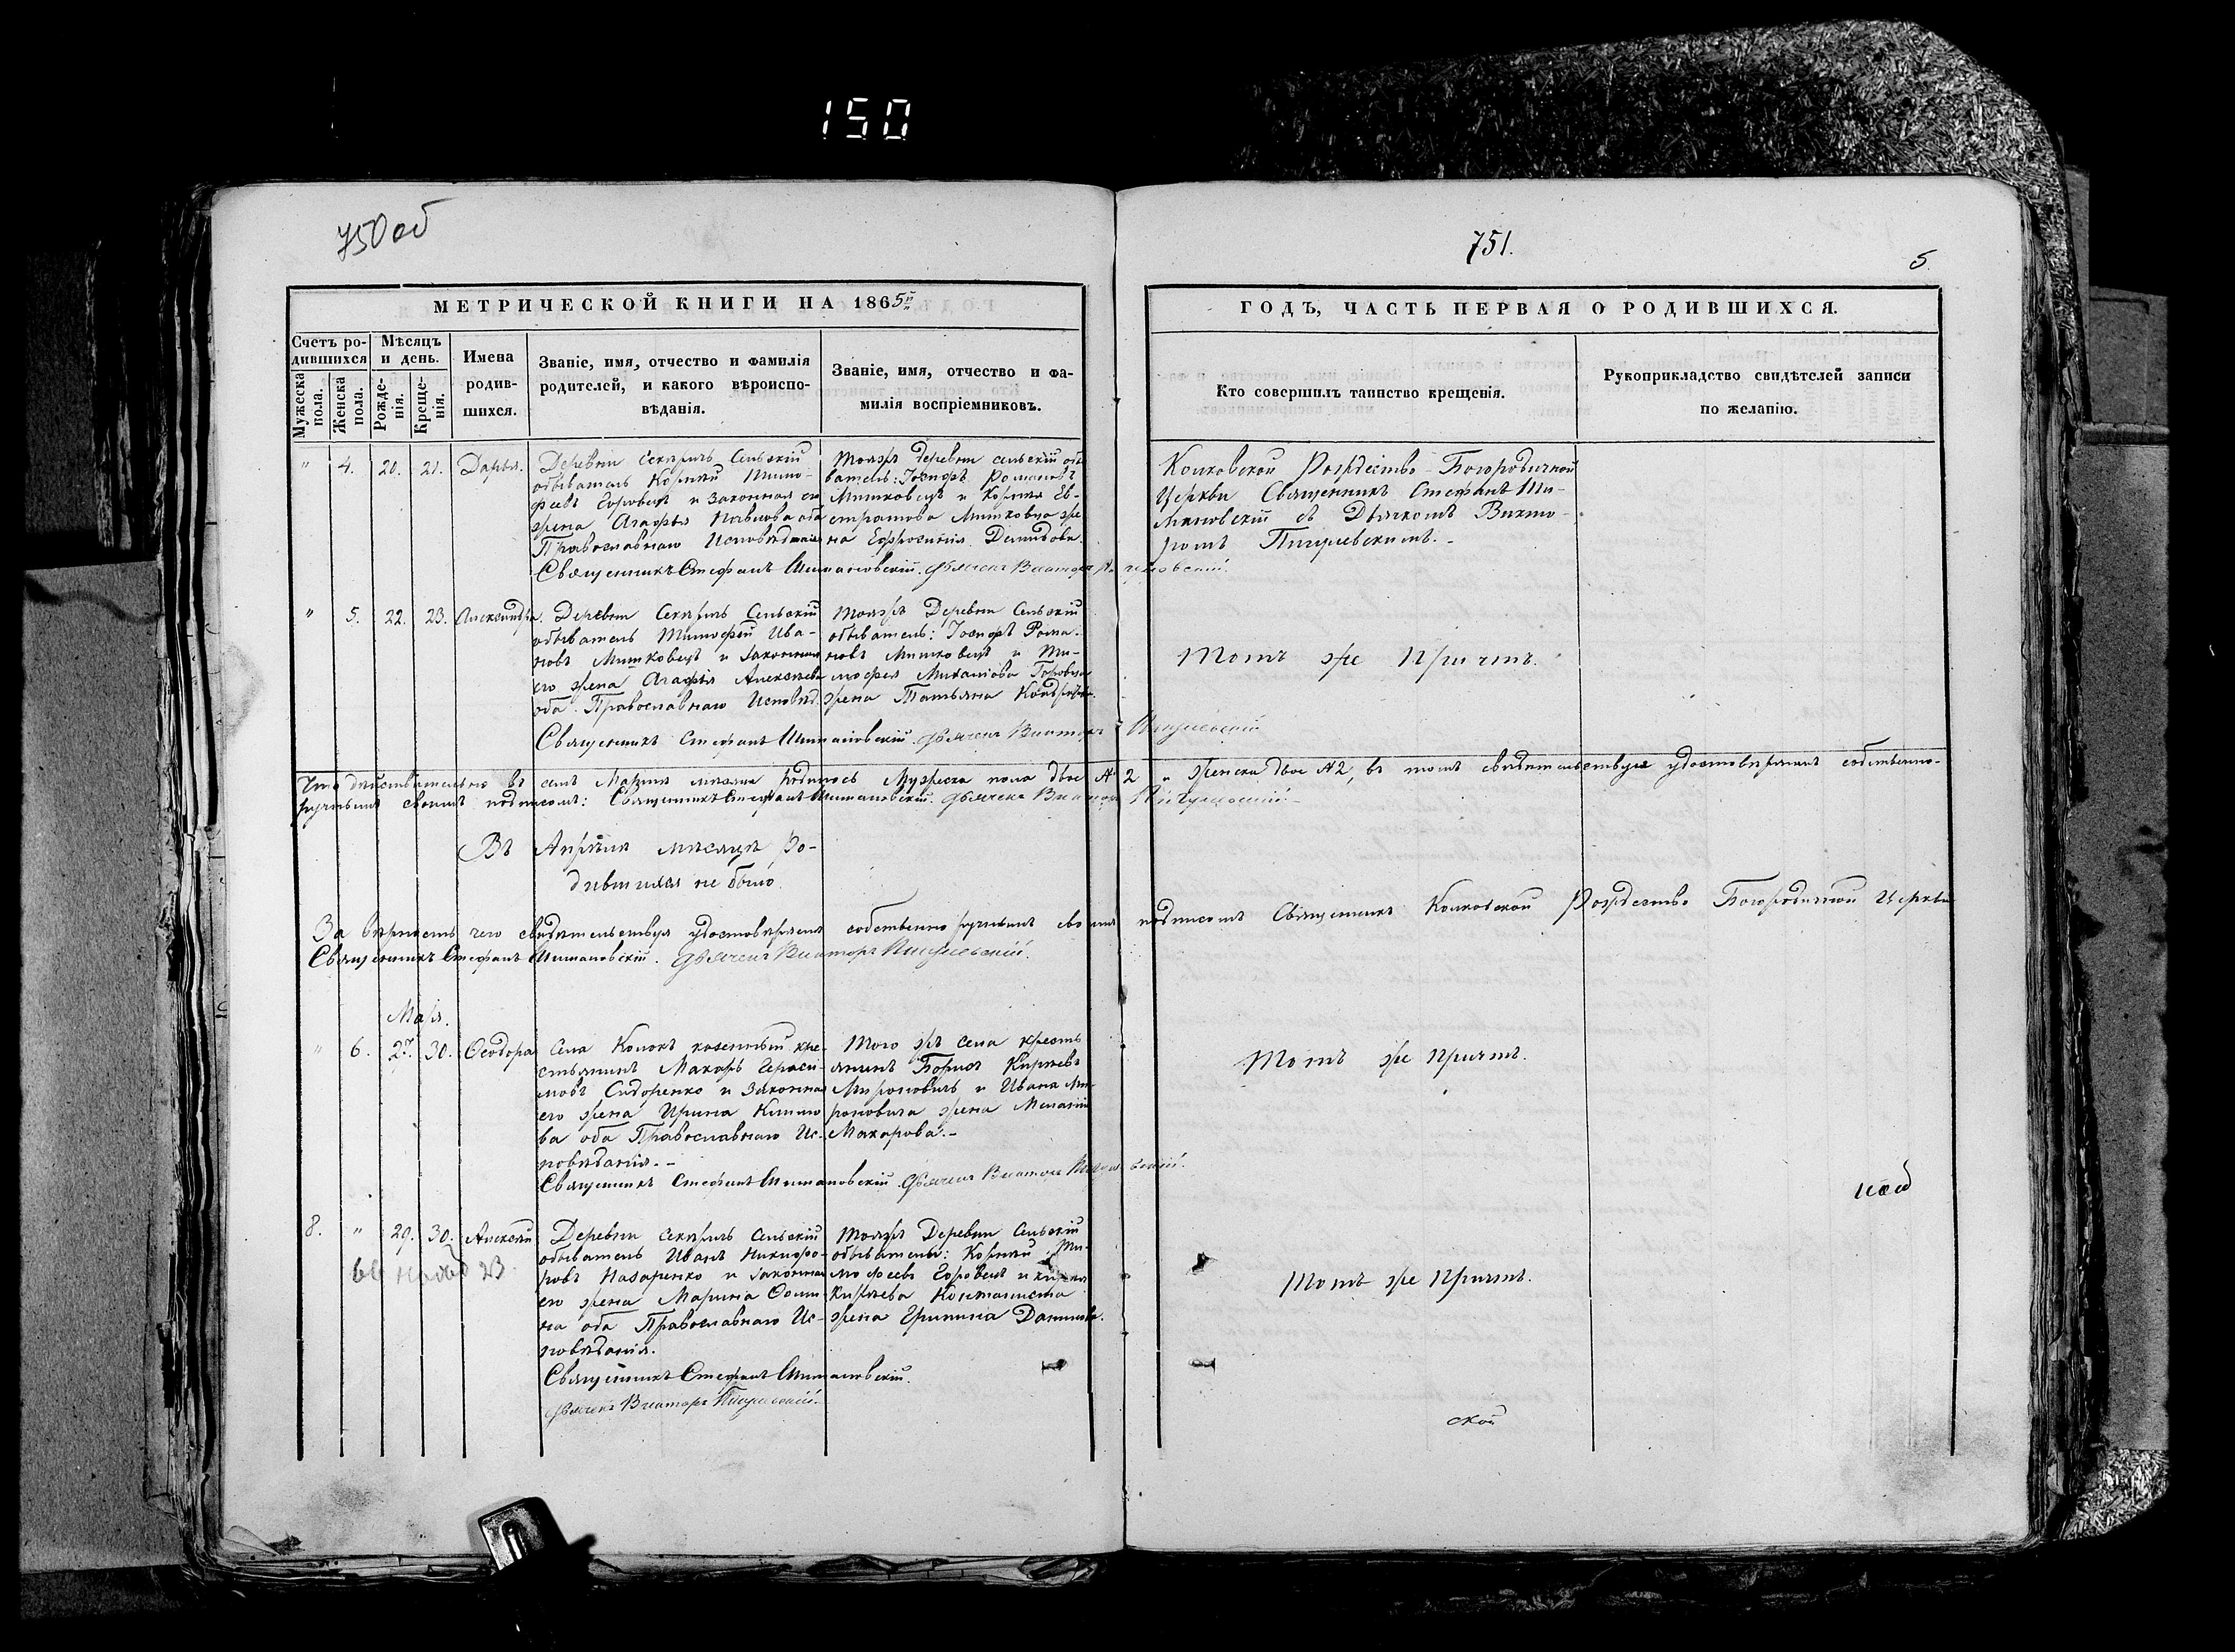 150
750 об
751.
5.
МЕТРИЧЕСКОЙ КНИГИ НА 1865й
ГОДЪ, ЧАСТЬ ПЕРВАЯ О РОДИВШИХСЯ.
Счетъ ро-
дившихся
Мѣсяцъ
и день.
Мужеска
пола.
Женска
пола.
Рожде-
нія.
Креще-
нія.
Имена
родив-
шихся.
Званіе, имя, отчество и фамилія
родителей, и какого вѣроиспо-
вѣданія.
Званіе, имя, отчество и фа-
милія воспріемниковъ.
Кто совершилъ таинство крещенія.
Рукоприкладство свидѣтелей записи
по желанію.
" 4. 20. 21. Дарья.
Деревни Сельскій
обыватель Корнилій Тимо-
феевъ Горовецъ и законная его
жена Агафья Павлова оба
Православнаго Исповѣданія
Тояжъ деревни сельскій обы-
ватель: Іосифъ Романовъ
Митковецъ и Корнія Ев-
стратова Митковца же-
на Ефросинія Демидова.
Рождество-Богородичной
Церкви Священникъ Стефанъ Ши-
мановскій съ Дьячкомъ Викто-
ромъ
Священникъ Стефанъ Шимановскій. Дьячекъ Викторъ
" 5. 22. 23. Александра.
Деревни Сельскій
обыватель Тимофей Ива-
новъ Митковецъ и законная
его жена Агафья Алексѣева
оба Православнаго Исповѣд.
Тояжъ Деревни Сельскій
обыватель: Іосифъ Рома-
новъ Митковецъ и Ти-
мофея Михайлова Горовца
жена Татьяна Кондратова.
Тотъ же Причтъ.
Священникъ Стефанъ Шимановскій. Дьячекъ Викторъ
Что дѣйствительно въ семъ Мартѣ мѣсяцѣ родилось Мужеска пола двое № 2 и женска двое № 2, въ томъ свидѣтельствуя удостовѣряемъ собственно-
ручнымъ своимъ подписомъ: Священникъ Стефанъ Шимановскій. Дьячекъ Викторъ
Въ Апрѣлѣ мѣсяцѣ Ро-
дившихся не было.
За вѣрность чего свидѣтельствуя удостовѣряемъ собственноручнымъ своимъ подписомъ Священникъ Рождество Богородичной Церкви
Священникъ Стефанъ Шимановскій. Дьячекъ Викторъ
Маія.
" 6. 27. 30. Ѳеодора
Села казенный кре-
стьянинъ Макаръ Гераси-
мовъ Сидоренко и Законная
его жена Ирина Климо-
ва оба Православнаго Ис-
повѣданія.-
Того жъ села кресть-
янинъ Борисъ Кирѣевъ
Мироновичъ и Ивана Ми-
роновича жена Меланія
Макарова.-
Тотъ же причтъ.
Священникъ Стефанъ Шимановскій Дьячекъ Викторъ
8. " 29. 30. Алексѣй
Деревни Сельскій
обыватель Иванъ Никифо-
ровъ Назаренко и законная
его жена Марина Ѳоми-
на оба Православнаго Ис-
повѣданія.
Тояжъ Деревни Сельскій
обыватель: Корнилій Ти-
мофеевъ Горовецъ и
Кирѣева
жена Данилова.
Тотъ же Причтъ.
Священникъ Стефанъ Шимановскій.
Дьячекъ Викторъ
ской